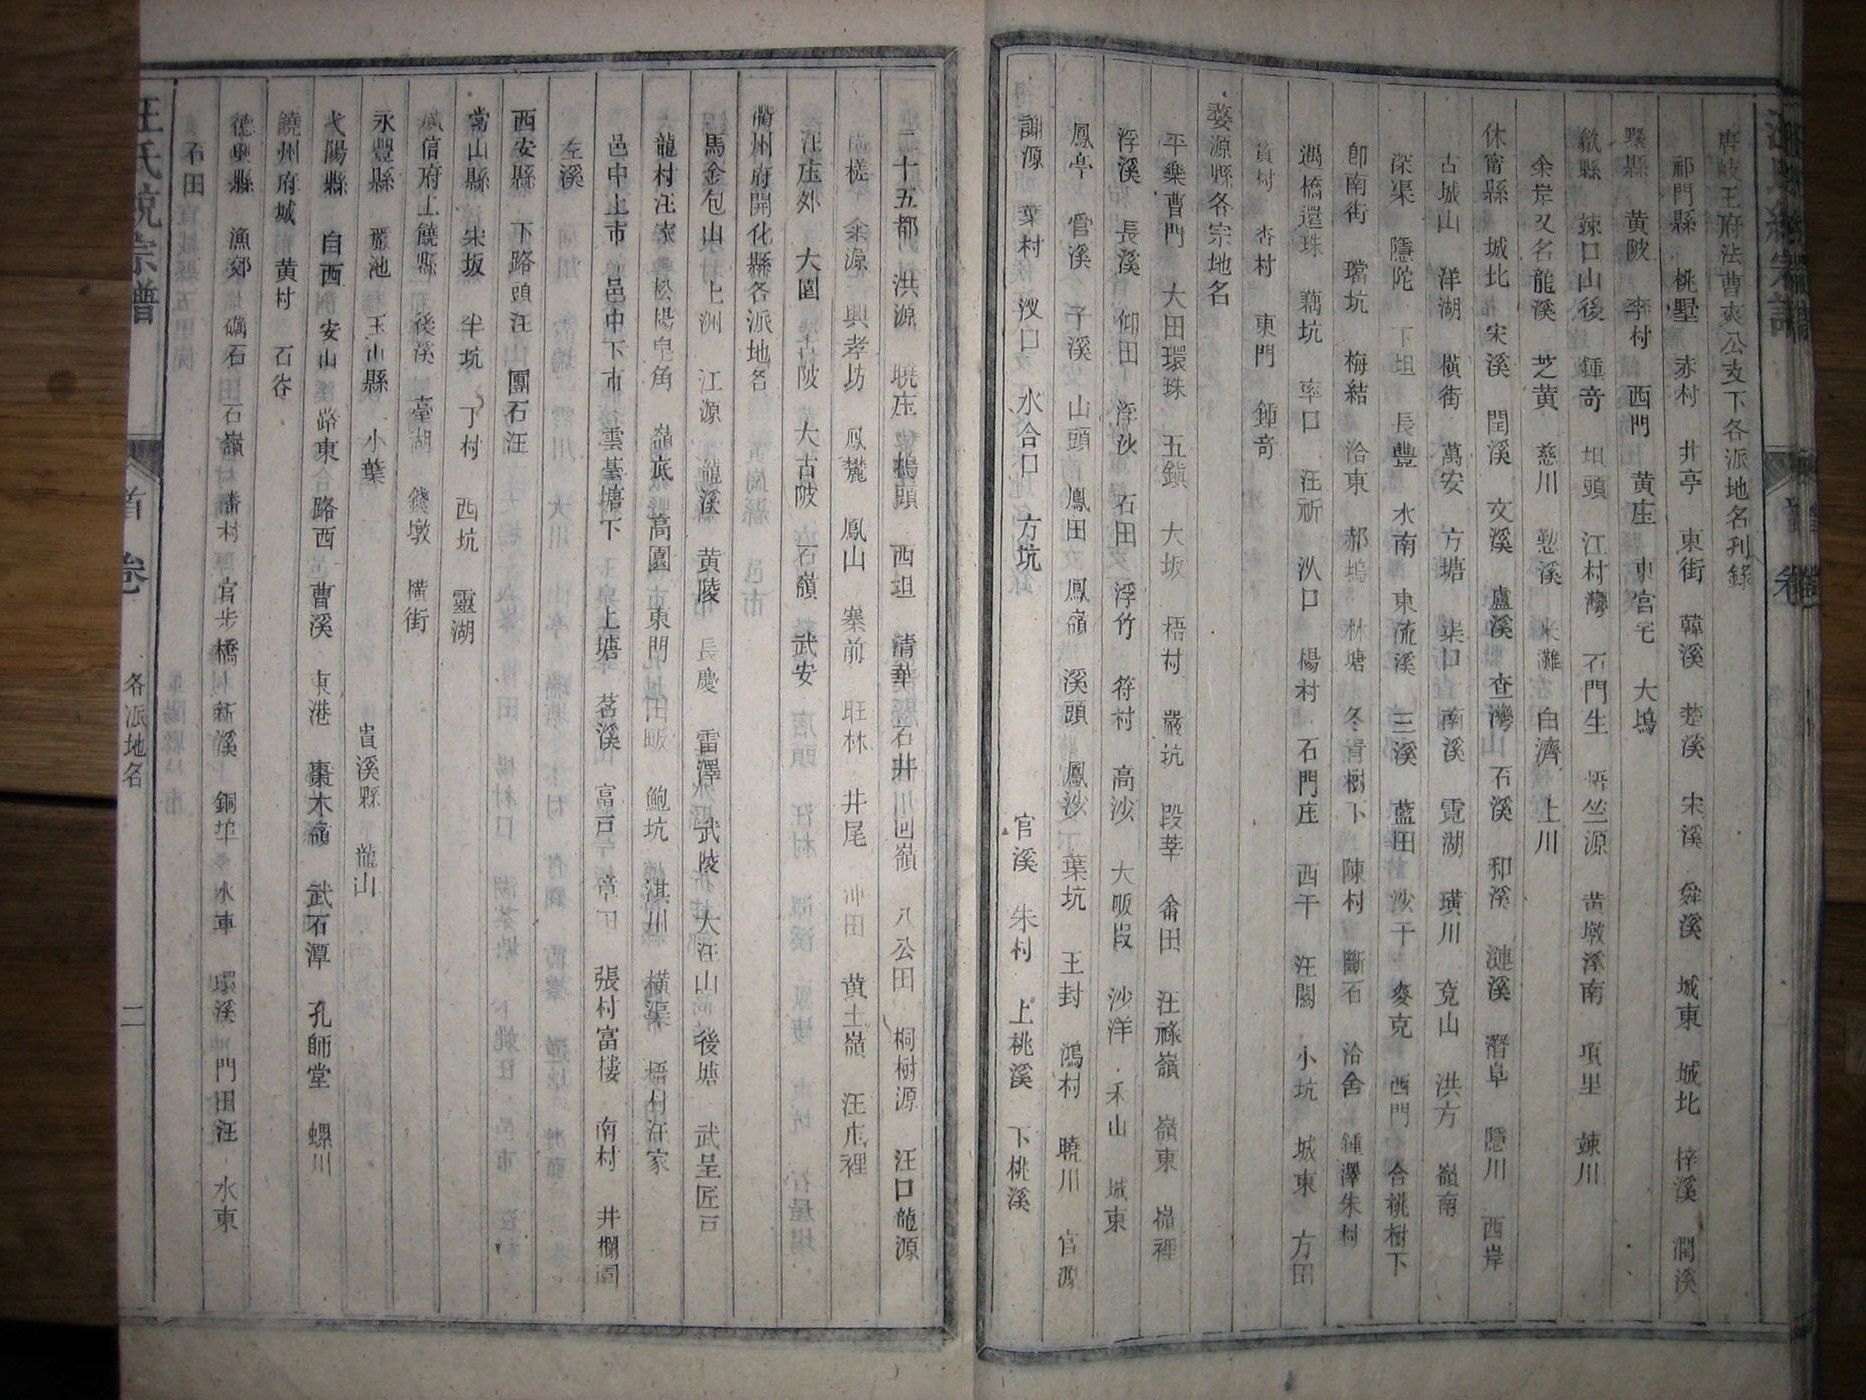 唐岐王府法曹爽公支下各派地名列錄
祁門縣 桃墅 赤村 井亭 東街 韓溪 楚溪 宋溪 舜溪 城東 城北 梓溪 潤溪
黟縣 黄陂 李村 西門 黄庄 東宫宅 大塢
歙縣 竦口山後 鍾奇 坦頭 江村灣 石門生 悟竺源 黄墩溪南 項里 竦川
余岸又名龍溪 芝黄 慈川 慤溪 米灘 白濟 上川
休甯縣 城北 宋溪 閏溪 文溪 盧溪 查灣 石溪 和溪 漣溪 潛阜 隱川 西岸
古城山 洋湖 橫街 萬安 方塘 渠口 南溪 霓湖 璜川 兗山 洪方 嶺南
深渠 隱陀 下坦 長豐 水南 東流溪 三溪 藍田 沙干 麥克 西門 合桃樹下
卽南街 璫坑 梅結 洽東 郝塢 林塘 冬青樹下 陳村 斷石 洽舍 鍾澤朱村
遇橋還珠 藕坑 率口 汪祈 汊口 楊村 石門庄 西干 汪關 小坑 城東 方田
杏村 東門 鍾奇
婺源縣各宗地名
平樂曹門 大田環珠 五鎮 大坂 梧村 嚴坑 段莘 畬田 汪祿嶺 嶺東 嶺裡
浮溪 長溪 仰田 浮沙 石田 浮竹 符村 高沙 大畈段 沙洋 禾山 城東
鳳亭 官溪 子溪 山頭 鳳田 鳳嶺 溪頭 鳳沙 葉坑 王封 鴻村 曉川 官源
謝源 葉村 汊口 水合口 方坑 官溪 朱村 上桃溪 下桃溪
二十五都 洪源 曉庄 楊頭 西坦 清華 石井川回嶺 八公田 桐樹源 汪口龍源
槎 余源 興孝坊 鳳麓 鳳山 寨前 旺林 井尾 沖田 黄土嶺 汪庄裡
汪庄外 大園 古陂 大古陂 石嶺 武安
衢州府開化縣各派地名
馬金包山 上洲 江源 龍溪 黄陵 長慶 雷澤 武陵 大汪山 後塘 武呈匠戸
龍村汪家 松楊皂角 嶺底 高園 東門 田畈 鮑坑 淇川 橫渠 梧村汪家
邑中上市 邑中下市 雲基塘下 上塘 茗溪 富戸 章田 張村富樓 南村 井欄圊
左溪
西安縣 下路頭汪 團石汪
常山縣 宋坂 半坑 丁村 西坑 靈湖
廣信府上饒縣 後溪 臺湖 錢墩 橫街
永豐縣 嚴池 玉山縣 小葉 貴溪縣 龍山
弋陽縣 自西 安山 路東 路西 曹溪 東港 棗木嶺 武石潭 孔師堂 螺川
饒州府城 黄村 石谷
德興縣 漁郊 礪石 石嶺 潘村 官步橋 新溪 銅埠 水車 環溪 門田汪 水東
石田
汪氏統宗譜 首卷 各派地名 二